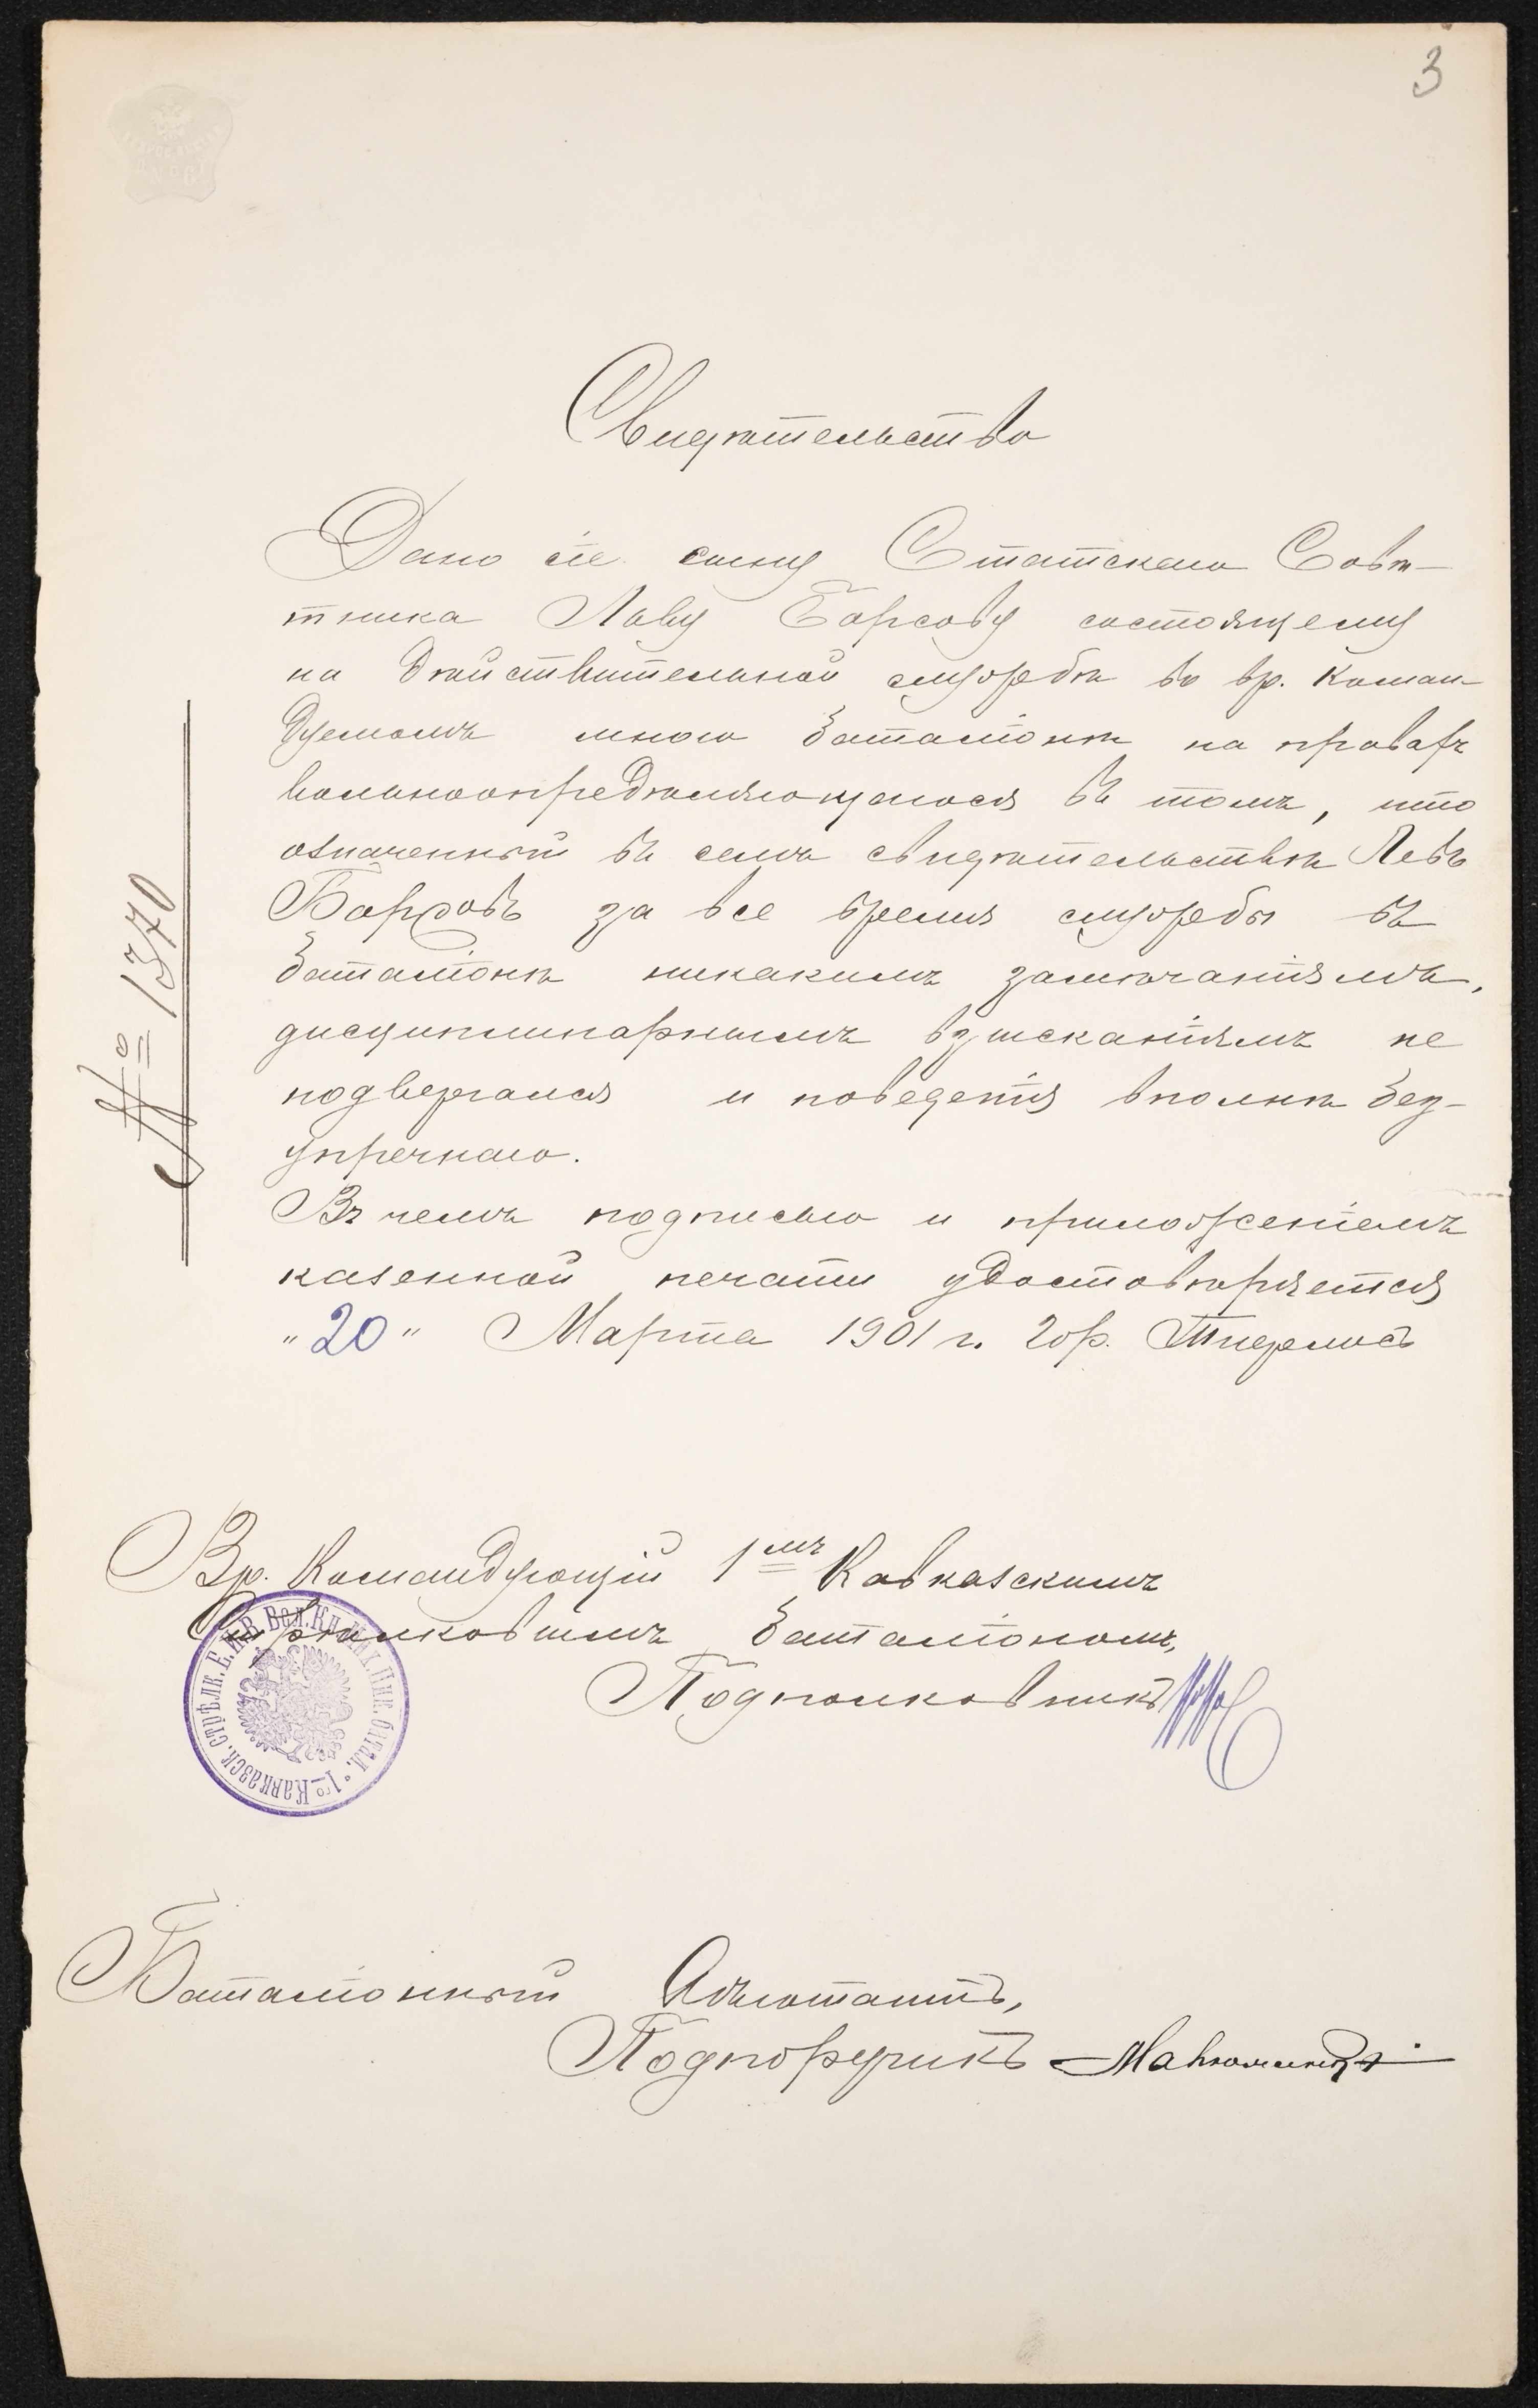 3
Свидѣтельство
Дано сіе сыну Статскаго Совѣ-
тника Льву Борсову состоящему
на дѣйствительной службѣ во вр. Коман-
дуемомъ мною баталіонѣ на правахъ
вольноопредѣляющагося въ томъ, что
означенный въ семъ свидѣтельствѣ Левъ
Борсовъ за все время службы въ
баталіонѣ никакимъ замѣчаніямъ,
дисциплинарнымъ взысканіямъ не
подвергался и поведенія вполнѣ без-
упречнаго.
Въ чемъ подписью и приложеніемъ
казенной печати удостовѣряется
"20" Марта 1901 г. гор. Тифлисъ
№ 1370
Вр. Командующій 1мъ Кавказскимъ
Стрѣлковымъ баталіономъ,
Подполковникъ
1го Кавказск. стрѣлк. Е.И.В. Вел. Кн. Мих. Ник. батал.
Баталіонный Адъютантъ,
Подпоручикъ